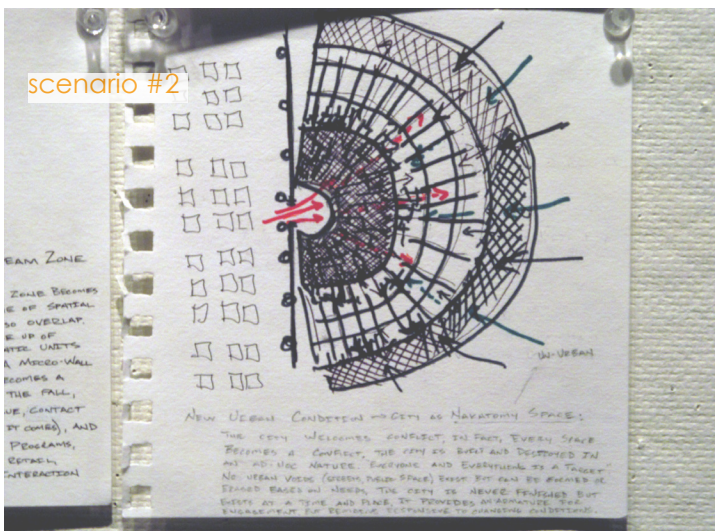 scenario #2
EAM ZONE
ZONE BECOMES
E OF SPATIAL
SO OVERLAP.
E UP OF
ATIC UNITS
A MICRO-WALL
ECOMES A
THE FALL,
UE, CONTACT
IT COMES), AND
PROGRAMS,
RETAIL,
INTERACTION
UN-URBAN
NEW URBAN CONDITION → CITY AS NAKATOMY SPACE:
THE CITY WELCOMES CONFLICT, IN FACT, EVERY SPACE
BECOMES A CONFLICT, THE CITY IS BUILT AND DESTROYED IN
AN AD-HOC NATURE. EVERYONE AND EVERYTHING IS A "TARGET"
NO URBAN VOIDS (STREETS, PUBLIC SPACE) EXIST BUT CAN BE FORMED OR
ERASED BASED ON NEEDS, THE CITY IS NEVER FINISHED BUT
EXISTS AT A TIME AND PLACE, IT PROVIDES AN ARMATURE FOR
ENGAGEMENT, BUT REMAINS RESPONSIVE TO CHANGING CONDITIONS.